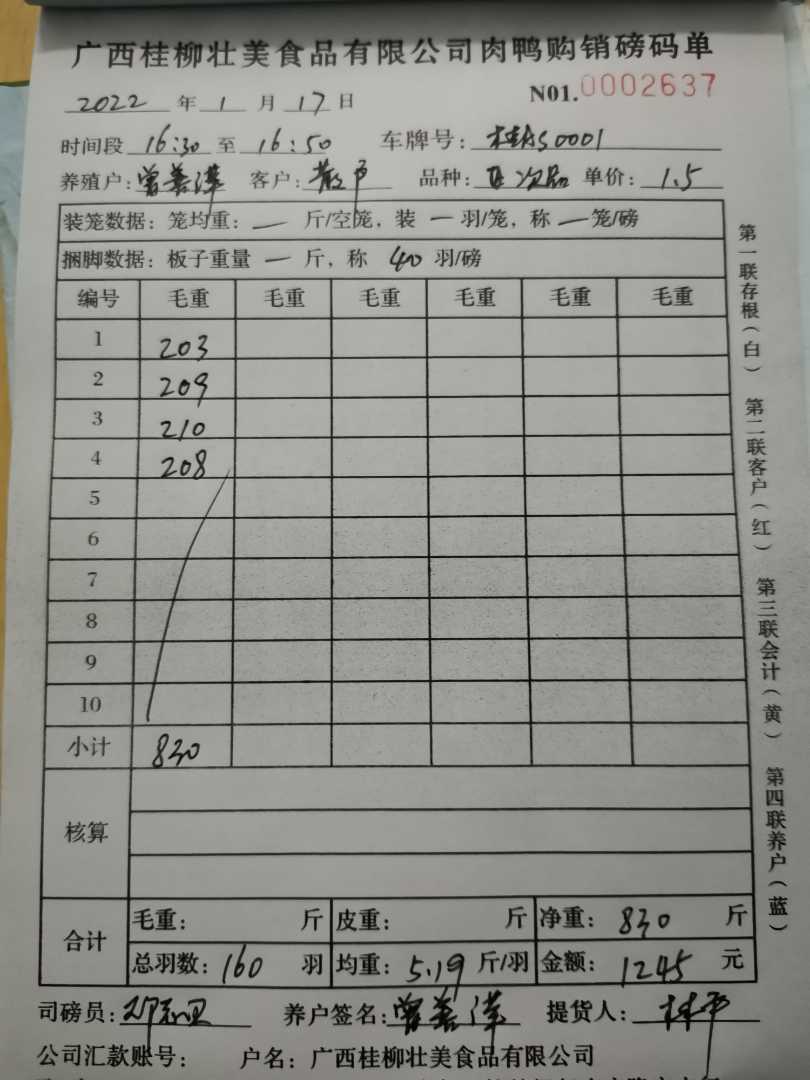 广西桂柳壮美食品有限公司肉鸭购销磅码单
2022 年 1 月 17 日 N01.0002637
时间段 16:30 至 16:50 车牌号: 桂AS0001
养殖户: 曾善 客户: 散户 品种: 次品 单价: 1.5
装笼数据: 笼均重: — 斤/空笼, 装 — 羽/笼, 称 — 笼/磅
捆脚数据: 板子重量 — 斤, 称 40 羽/磅
编号 毛重 毛重 毛重 毛重 毛重 毛重
1 203
2 209
3 210
4 208
5
6
7
8
9
10
小计 830
核算
合计 毛重: 斤 皮重: 斤 净重: 830 斤
总羽数: 160 羽 均重: 5.19 斤/羽 金额: 1245 元
司磅员: 养户签名: 曾善 提货人: 林平
公司汇款账号: 户名: 广西桂柳壮美食品有限公司
第一联存根(白) 第二联客户(红) 第三联会计(黄) 第四联养户(蓝)